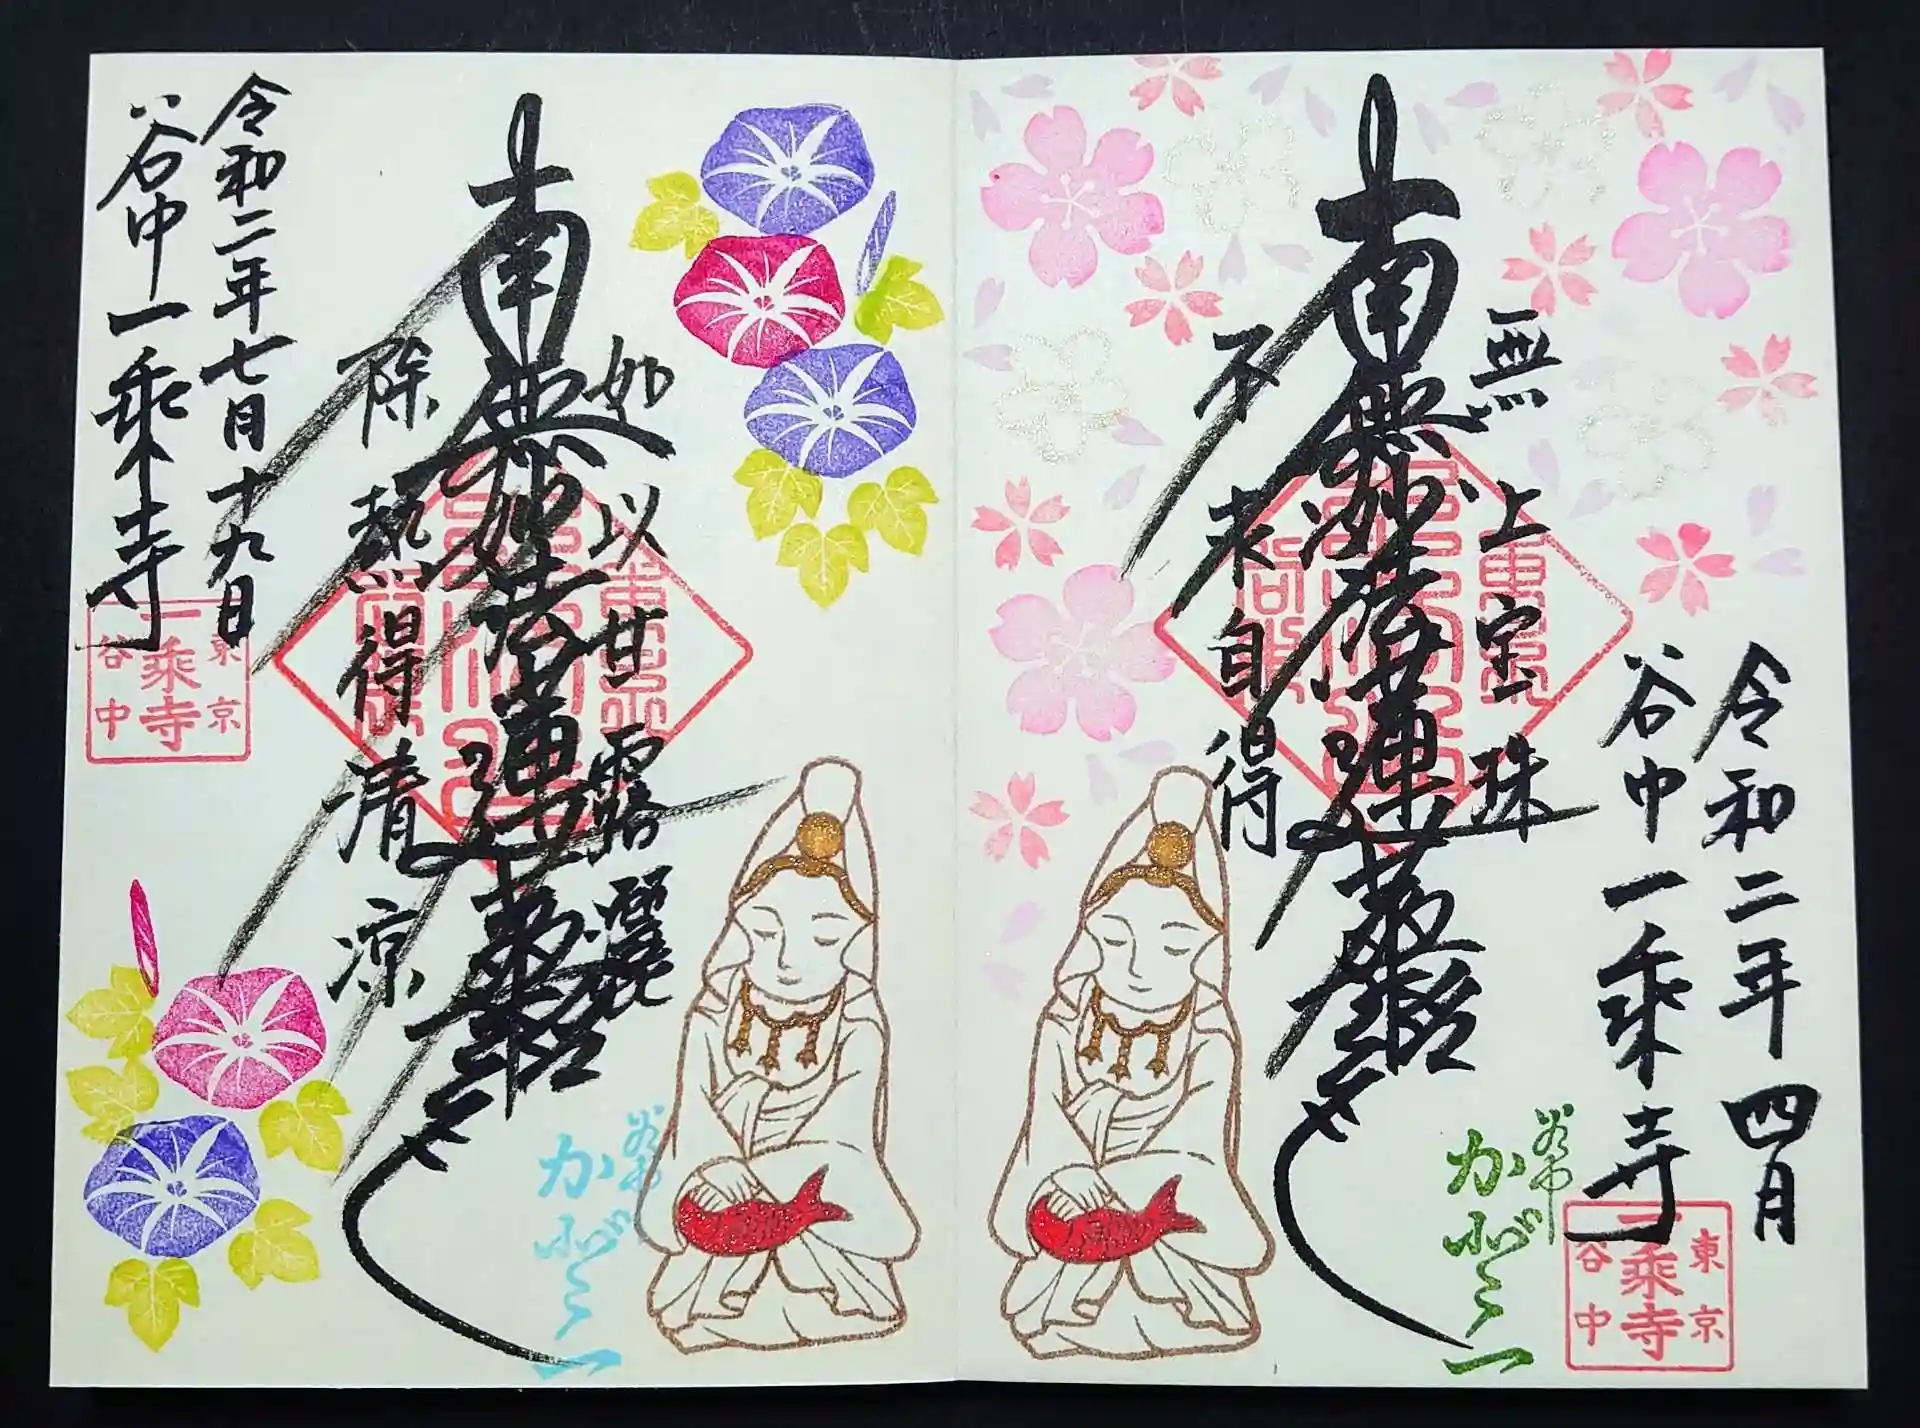 無上宝珠
南無妙法蓮華経
不求自得
令和二年四月
谷中一乗寺
東京
一乗寺
谷中
谷中
如以甘露灑
南無妙法蓮華経
除熱得清涼
令和二年七月十九日
谷中一乗寺
東京
一乗寺
谷中
谷中